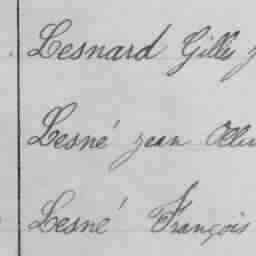 Lesnard Gilles
Lesné jean
Lesné François